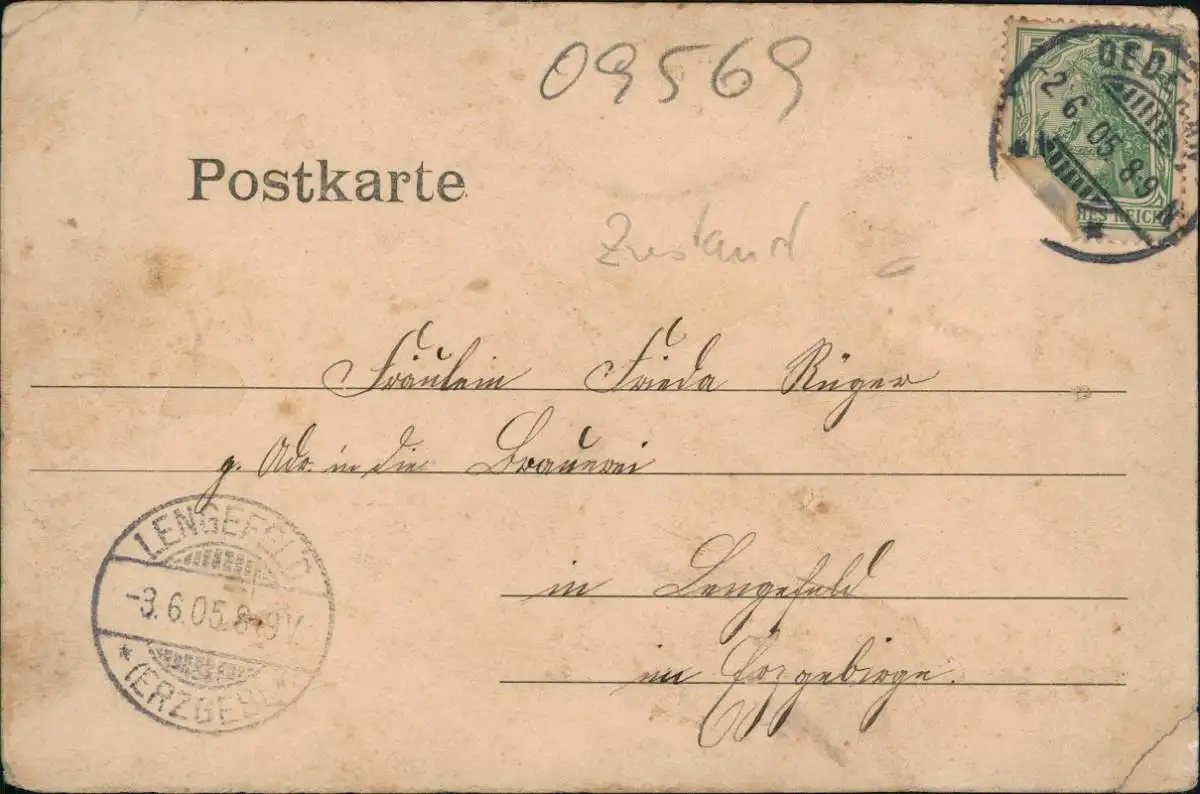 09569
5
OED
-2 6. 05. 8-9 N
HES REICH
Postkarte
Zustand
Fräulein Frieda Rüger
z. Adr. in die Brauerei
LENGEFELD
-3. 6. 05. 8-9 V.
* (ERZGEB.) *
in Lengefeld
im Erzgebirge.